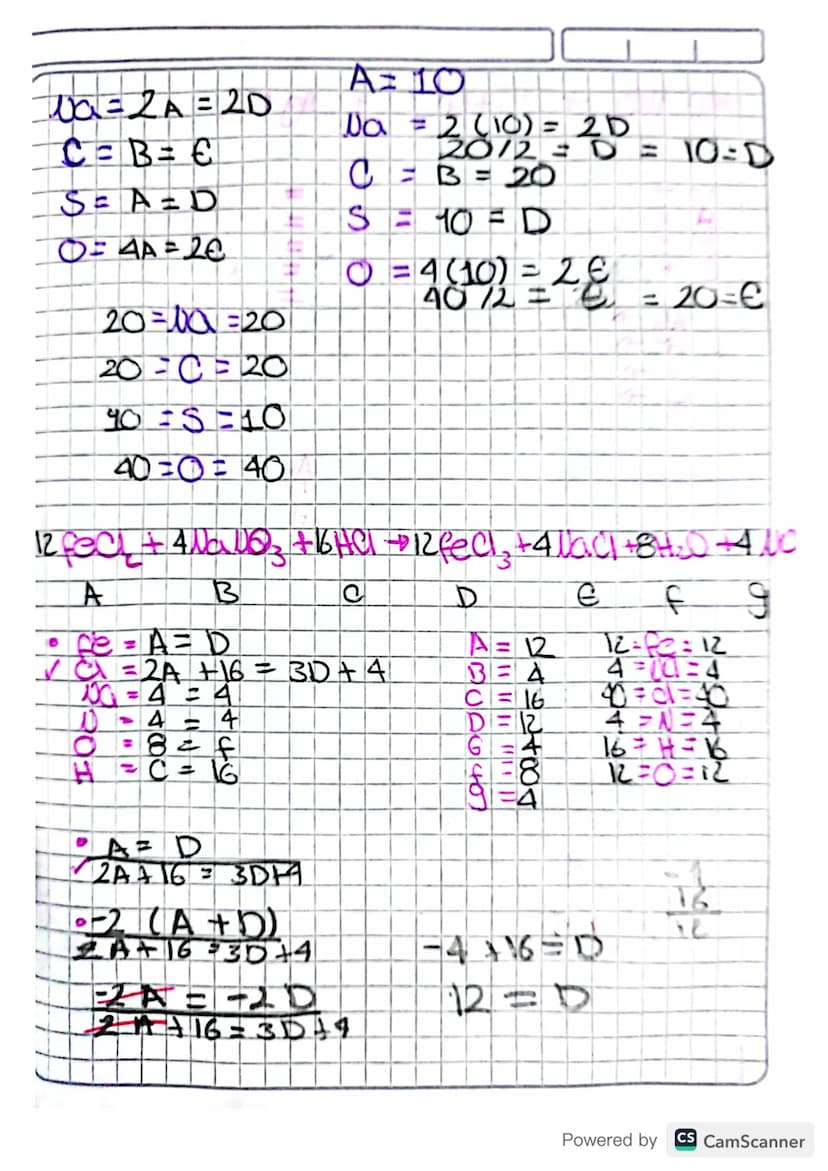 Na = 2A = 2D
C = B = E
S = A = D
O = 4A = 2E
20 = Na = 20
20 = C = 20
10 = S = 10
40 = O = 40
A = 10
Na = 2(10) = 2D
20/2 = D = 10 = D
C = B = 20
S = 10 = D
O = 4(10) = 2E
40/2 = E = 20 = E
12FeCl₂ + 4NaNO₃ + 16HCl → 12FeCl₃ + 4NaCl + 8H₂O + 4NO
A B C D E F g
• Fe = A = D
✓ Cl = 2A + 16 = 3D + 4
Na = 4 = 4
N = 4 = 4
O = 8 = f
H = C = 16
A = 12
B = 4
C = 16
D = 12
G = 4
f = 8
g = 4
12 = Fe = 12
4 = Na = 4
40 = Cl = 40
4 = N = 4
16 = H = 16
12 = O = 12
• A = D
✓ 2A + 16 = 3D + 4
• -2 (A + D)
2A + 16 = 3D + 4
-2A = -2D
2A + 16 = 3D + 4
-4 + 16 = D
12 = D
16
12
Powered by CS CamScanner